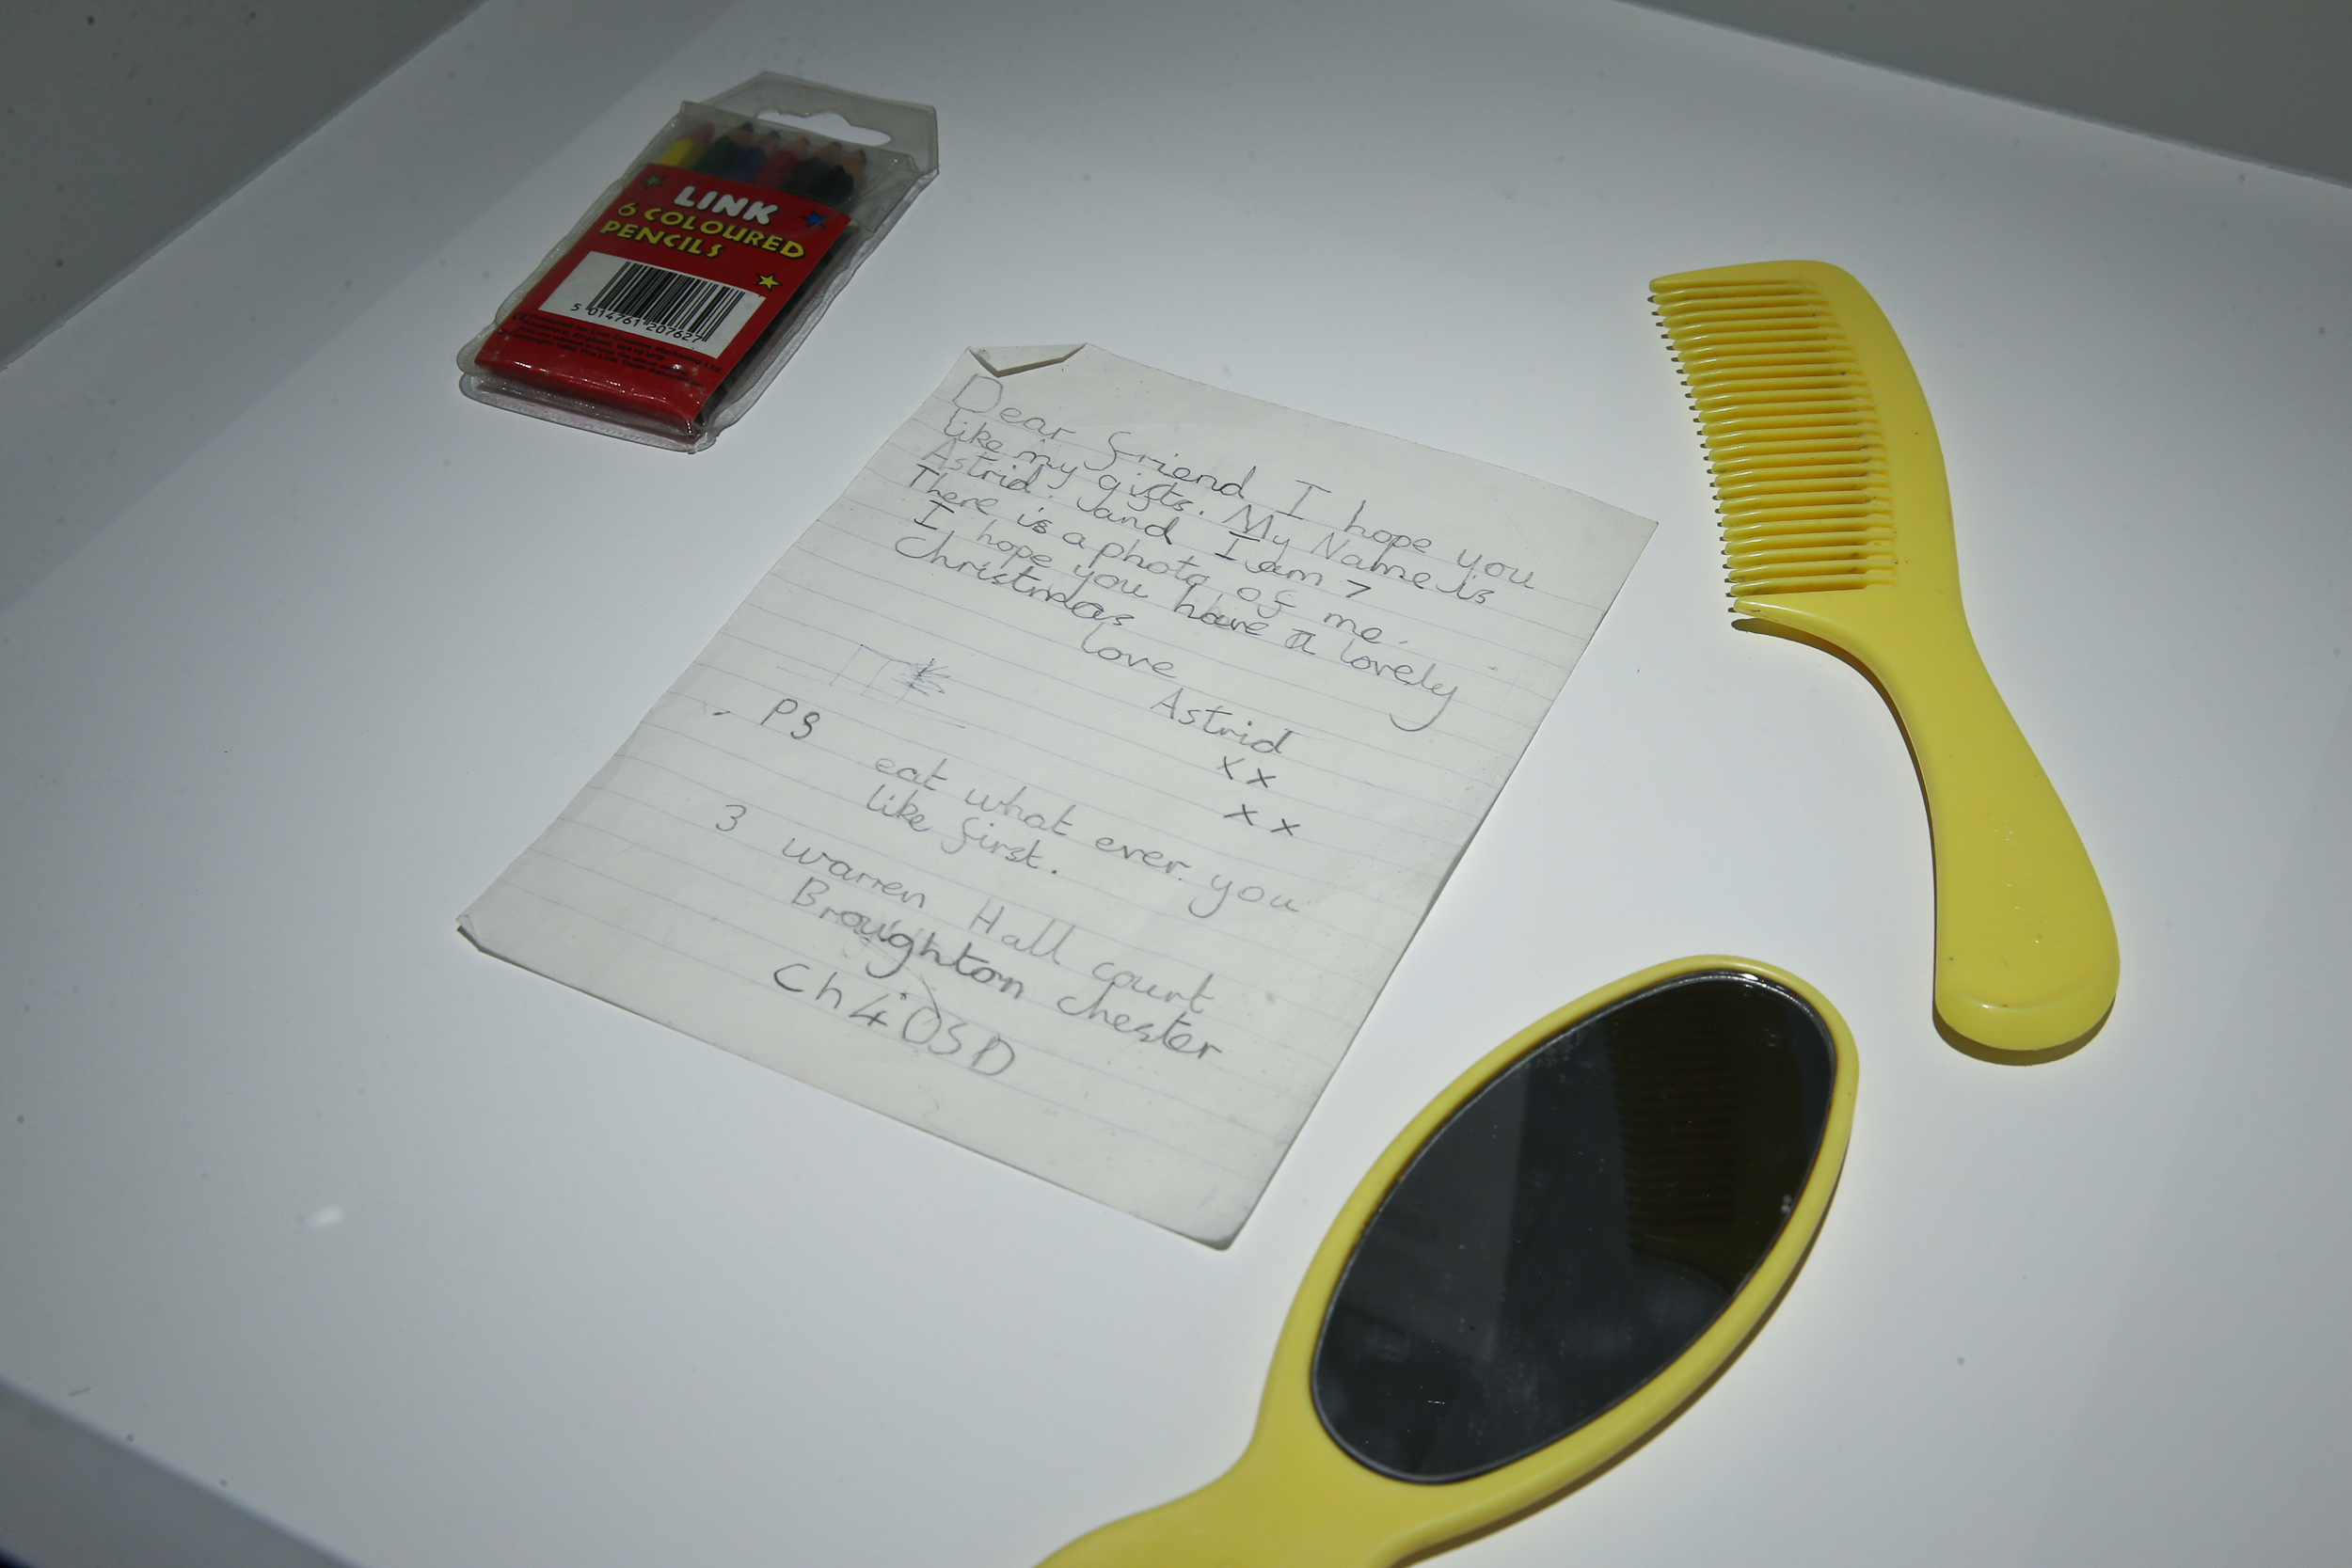 LINK
6 COLOURED
PENCILS
5 014761 207627
Dear friend I hope you
like my gifts. My Name is
Astrid. and I am 7
There is a photo of me.
I hope you have a lovely
christmas
love
Astrid
x x
x x
PS
eat what ever you
like first.
3 warren Hall court
Broughton chester
Ch4 OSD